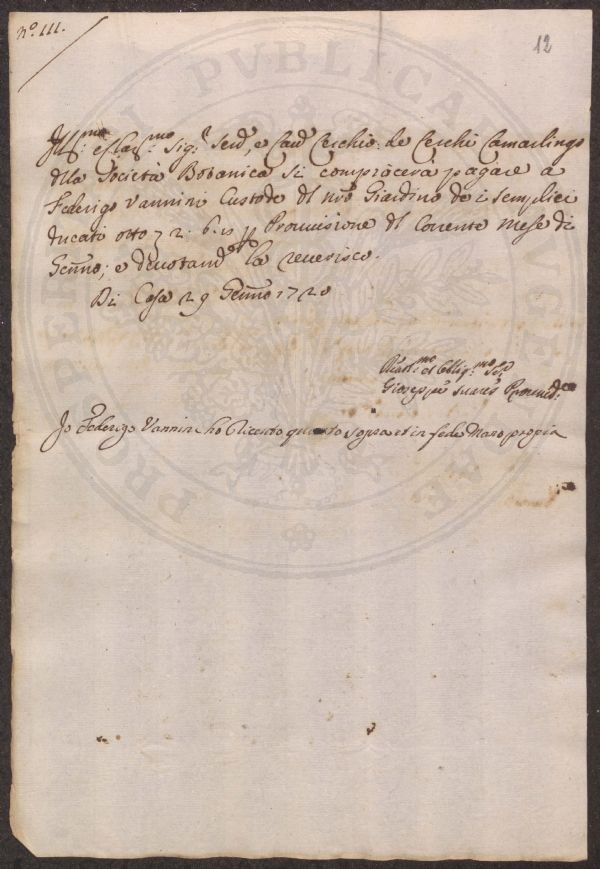 n.o III.
12
Ill.mo e Clar.mo Sig.r Sen.r, e Cau.r Cerchio de Cerchi Camarlingo
dlla Società Botanica si compiacerà pagare a
Federigo Vannini Custode dl nro Giardino de i semplici
ducati otto
Prouuisione dl Corrente Mese di
Genno; e deuotam.te la reuerisco.
Di Casa 29 Genno 1720
Giuseppe Suares Proueed.re
Io Federigo Vannini ho riceuto quanto sopra et in fede Mano propia
PRO PERPETUI PVBLICAE AE